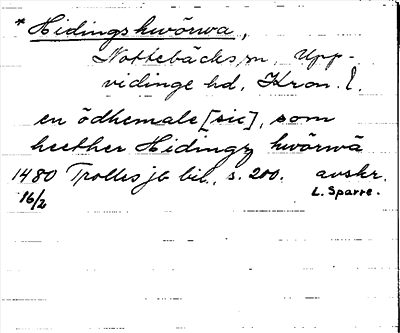 * Hidingshwörwa,
Nottebäcks sn, Upp-
vidinge hd, Kron. l.
en ödhemale [sic], som
heether Hidingz hwörwä
1480 Trolles jb bil., s. 200. avskr.
16/2 L. Sparre.